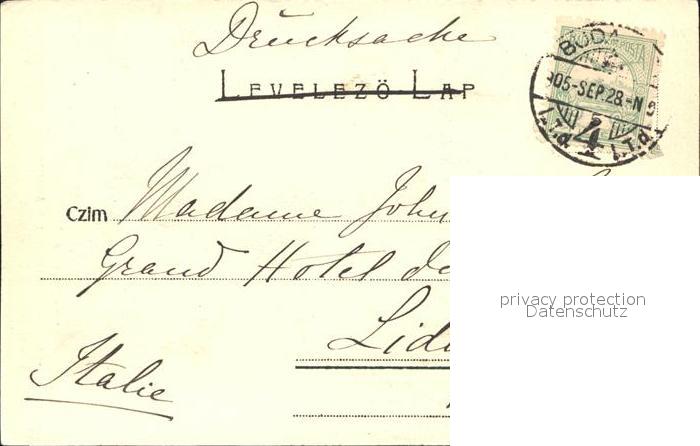 Drucksache
LEVELEZÖ LAP
BUDA
905-SEP.28.-N
4
Czim Madame John
Grand Hotel de
Lid
Italie
privacy protection
Datenschutz